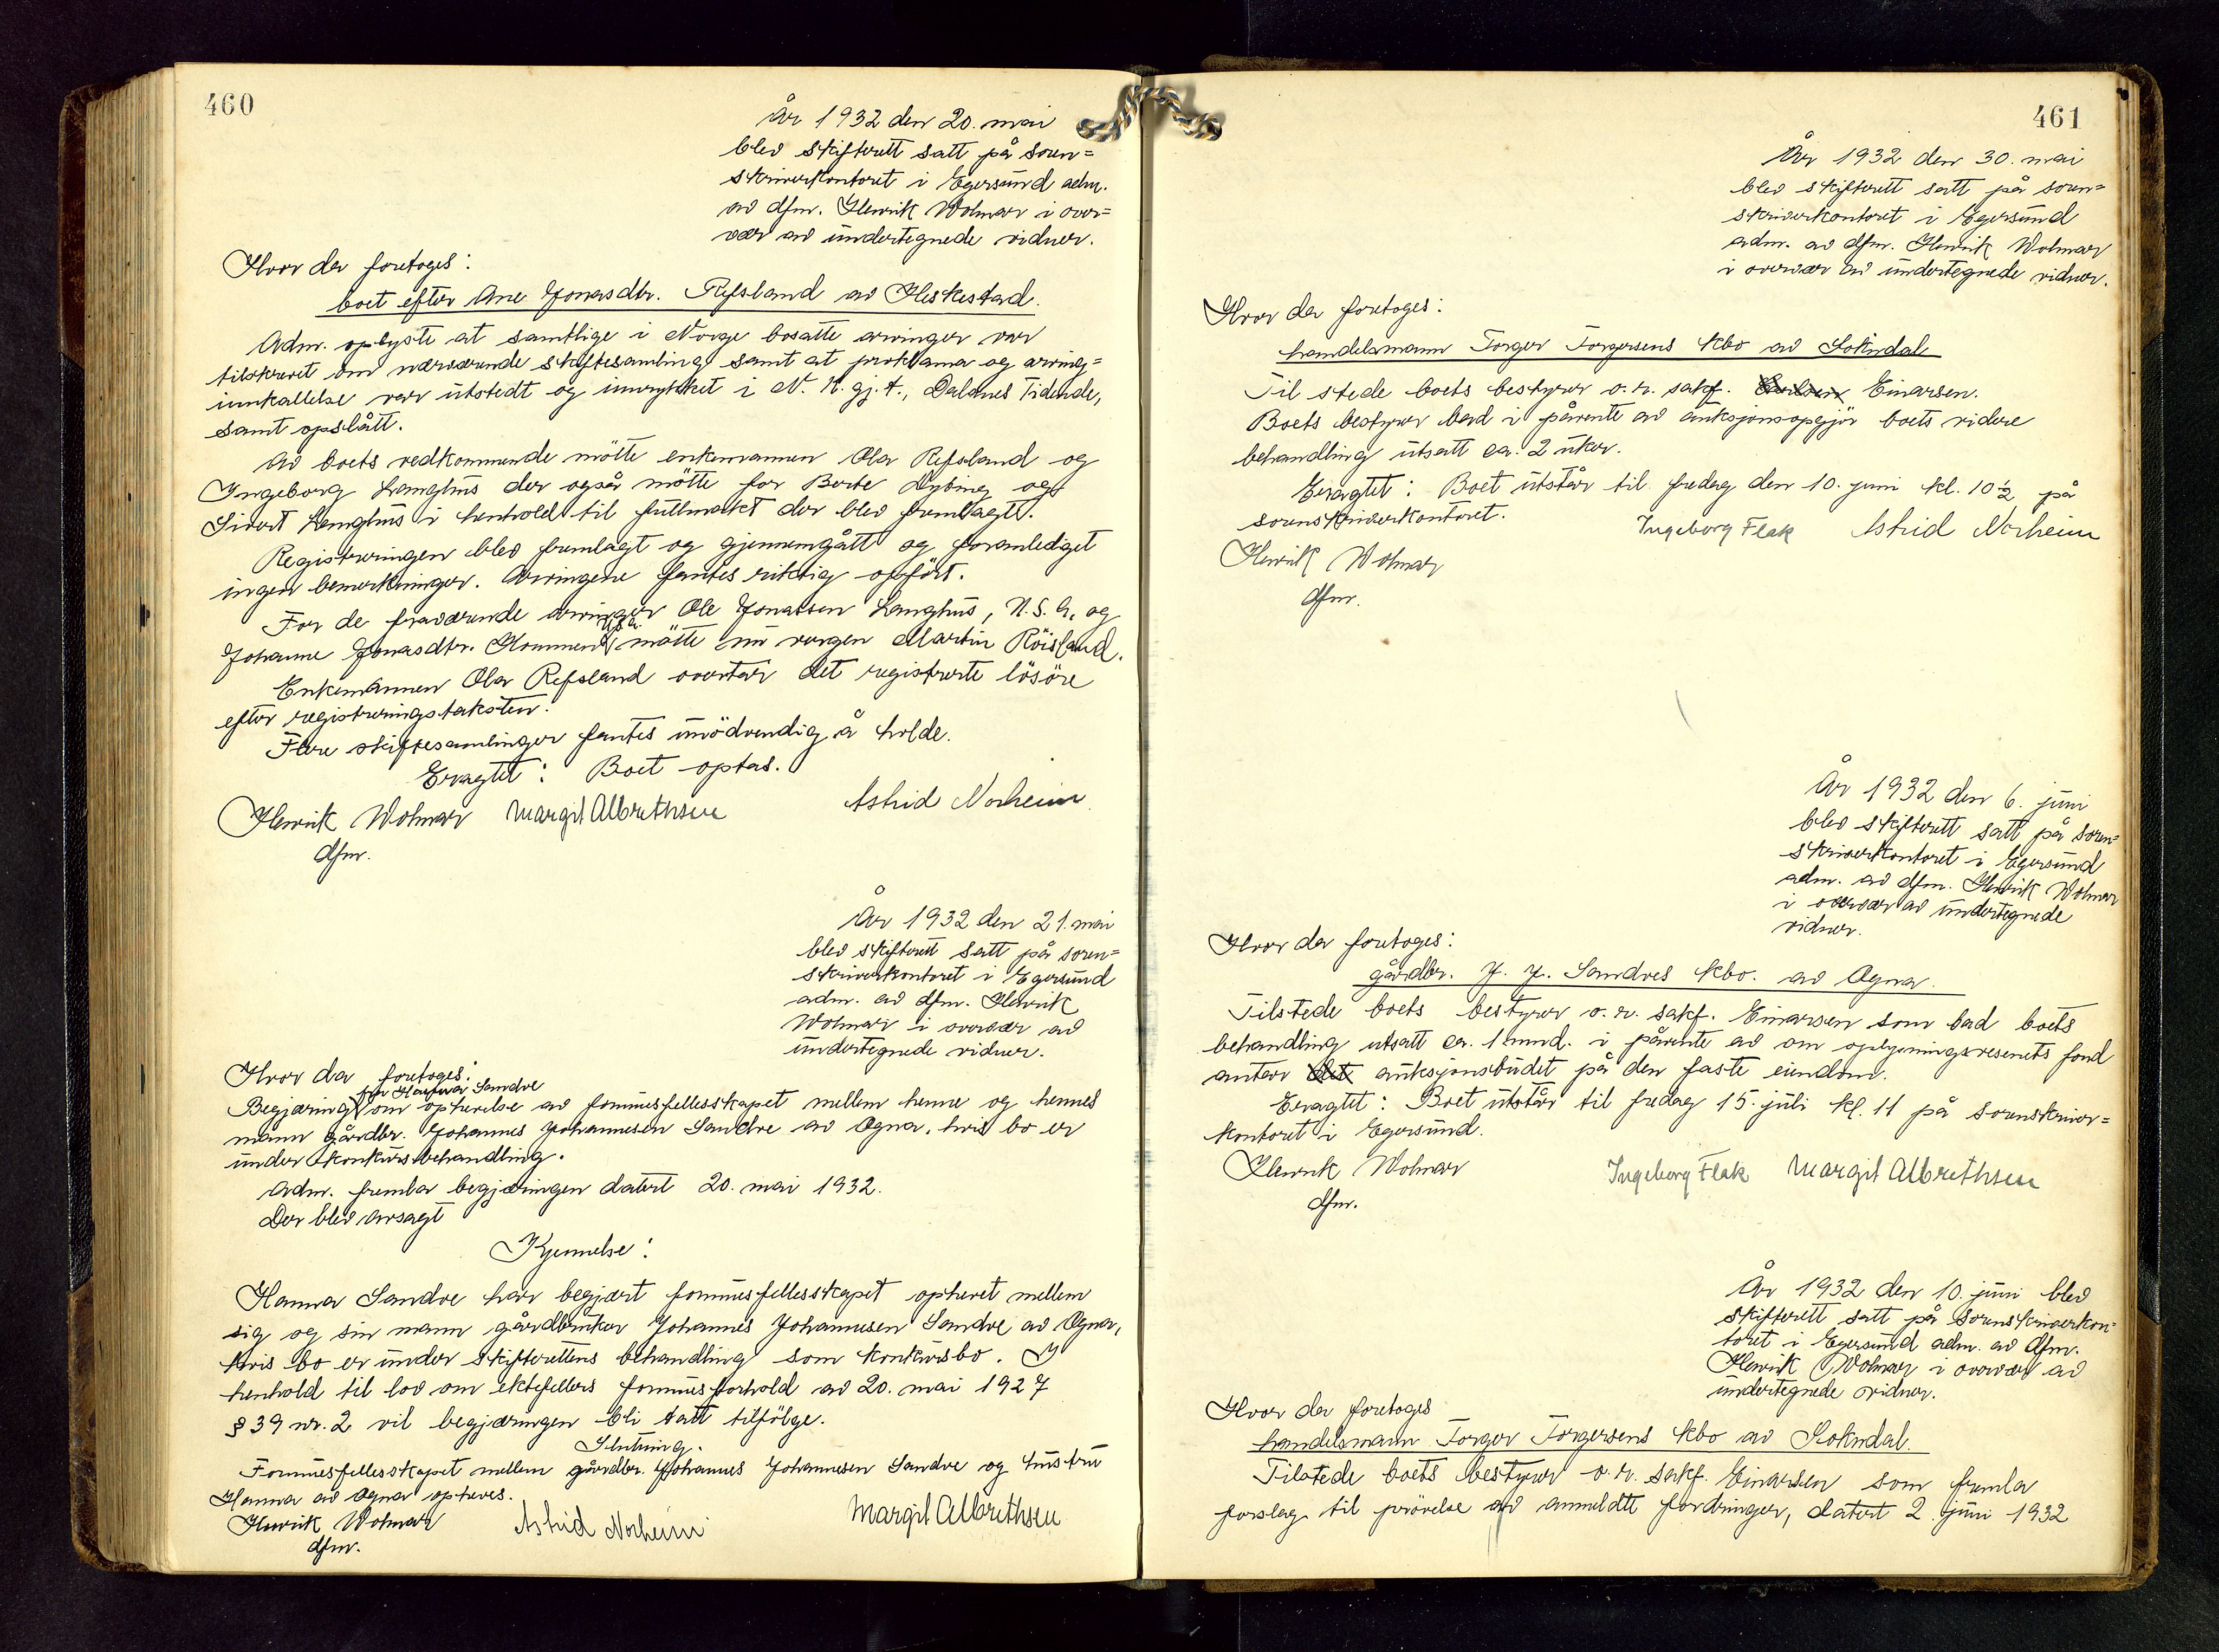 460
År 1932 den 20. mai
blev skifterett satt på soren=
skriverkontoret i Egersund adm.
av dfm. Henrik Wolmar i over=
vær av undertegnede vidner.
Hvor da foretoges:
boet efter Ane Jonasdtr. Refsland av Heskestad.
Adm. oplyste at samtlige i Norge bosatte arvinger var
tilskrevet om nærværende skiftesamling samt at proklama og arving=
innkallelse var utstedt og innrykket i N. K. gj. t., Dalanes Tidende,
samt opslått.
Av boets vedkommende møtte enkemannen Ola Refsland og
Ingeborg Langhus der også møtte for Berte Nybing og
Sivert Langhus i henhold til fullmakt der blev fremlagt.
Registreringen blev fremlagt og gjennemgått og foranlediget
ingen bemerkninger. Arvingene fantes riktig opført.
For de fraværende arvinger Ole Jonassen Langhus, U.S.A., og
Johanne Jonasdtr. Hommen U.S.A. møtte nu vergen Martin Röisland.
Enkemannen Ola Refsland overtar det registrerte lösöre
efter registreringstaksten.
Flere skiftesamlinger fantes unödvendig å holde.
Eragtet: Boet optas.
Henrik Wolmar Margit Albrethsen Astrid Norheim
dfm.
År 1932 den 21. mai
blev skifterett satt på soren=
skriverkontoret i Egersund
adm. av dfm. Henrik
Wolmar i overvær av
undertegnede vidner.
Hvor da foretoges:
Begjæring fra Hanna Sandve om ophevelse av formuesfellesskapet mellem henne og hennes
mann gårdbr. Johannes Johannesen Sandve av Ogna, hvis bo er
under konkursbehandling.
Adm. fremla begjæringen datert 20. mai 1932.
Der blev avsagt
Kjennelse:
Hanna Sandve har begjært formuesfellesskapet ophevet mellem
sig og sin mann gårdbruker Johannes Johannesen Sandve av Ogna,
hvis bo er under skifterettens behandling som konkursbo. I
henhold til lov om ektefellers formuesforhold av 20. mai 1927
§ 39 nr. 2 vil begjæringen bli tatt tilfölge.
Slutning.
Formuesfellesskapet mellem gårdbr. Johannes Johannesen Sandve og hustru
Hanna av Ogna opheves.
Henrik Wolmar Astrid Norheim Margit Albrethsen
dfm.
461
År 1932 den 30. mai
blev skifterett satt på soren=
skriverkontoret i Egersund
adm. av dfm. Henrik Wolmar
i overvær av undertegnede vidner.
Hvor da foretoges:
handelsmann Torger Torgersens kbo av Sokndal
Til stede boets bestyrer o.r. sakf. Einarsen.
Boets bestyrer bad i påvente av auksjonsopgjör boets videre
behandling utsatt ca. 2 uker.
Eragtet: Boet utstår til fredag den 10. juni kl. 10½ på
sorenskriverkontoret.
Ingeborg Flak Astrid Norheim
Henrik Wolmar
dfm.
År 1932 den 6. juni
blev skifterett satt på soren=
skriverkontoret i Egersund
adm. av dfm. Henrik Wolmar
i overvær av undertegnede
vidner.
Hvor da foretoges:
gårdbr. J. J. Sandves kbo. av Ogna.
Tilstede boets bestyrer o.r. sakf. Einarsen som bad boets
behandling utsatt ca. 1 mnd. i påvente av om oplysningsvesenets fond
antar det auksjonsbudet på den faste eiendom.
Eragtet: Boet utstår til fredag 15. juli kl. 11 på sorenskriver=
kontoret i Egersund.
Henrik Wolmar Ingeborg Flak Margit Albrethsen
dfm.
År 1932 den 10. juni blev
skifterett satt på sorenskriverkon=
toret i Egersund adm. av dfm.
Henrik Wolmar i overvær av
undertegnede vidner.
Hvor da foretoges
handelsmann Torger Torgersens kbo av Sokndal.
Tilstede boets bestyrer o.r. sakf. Einarsen som fremla
forslag til prövelse av anmeldte fordringer, datert 2. juni 1932